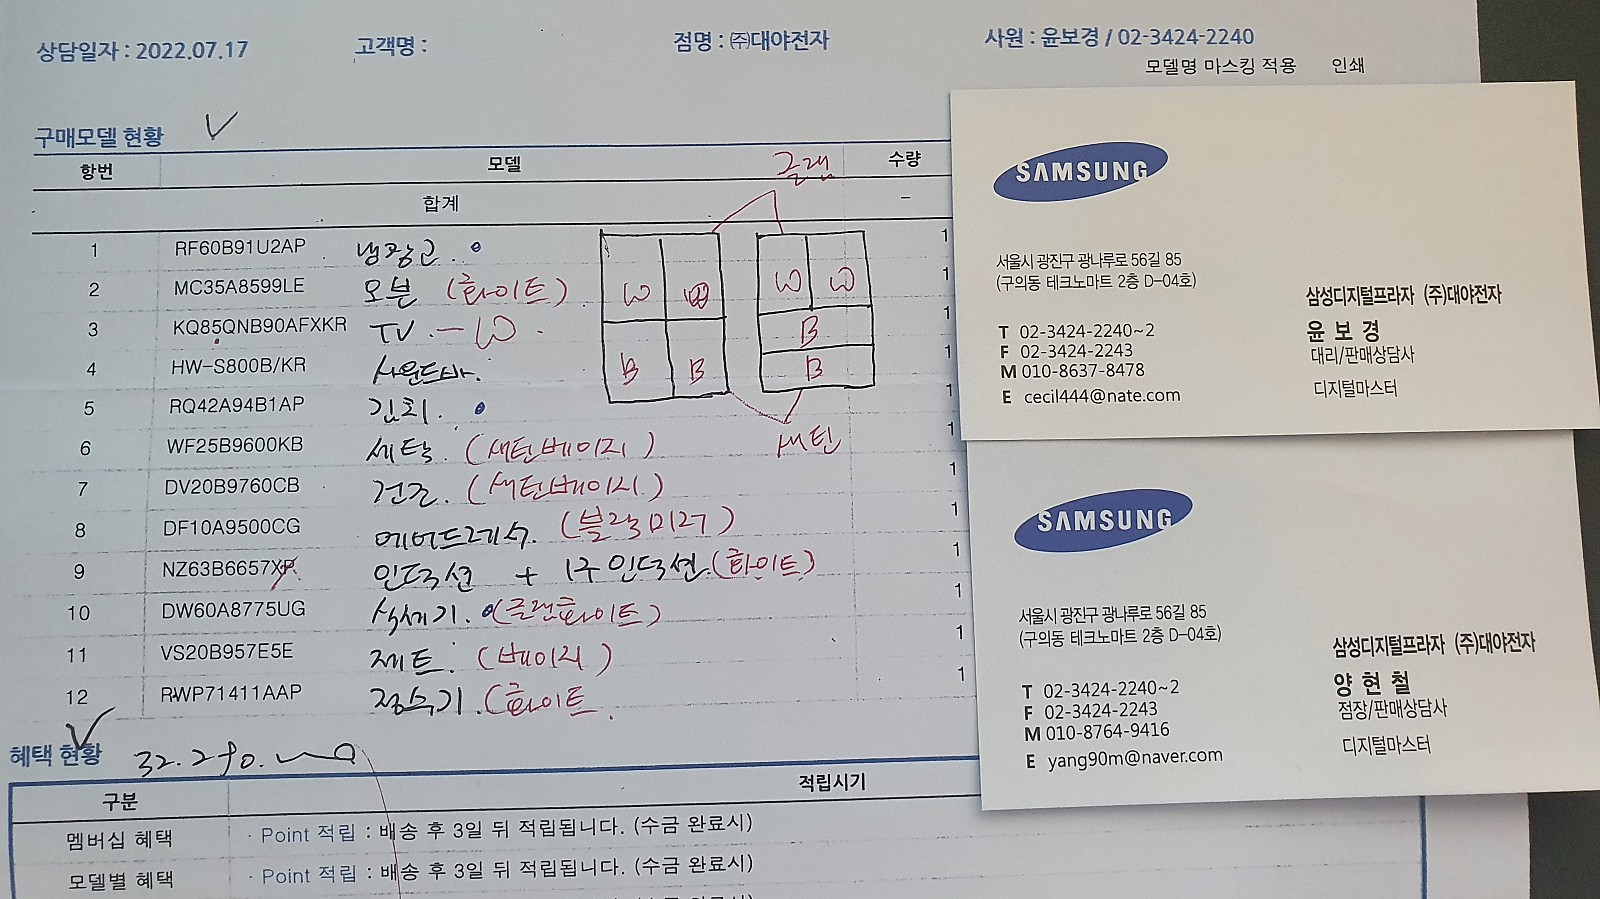 상담일자 : 2022.07.17 고객명 : 점명 : ㈜대야전자 사원 : 윤보경 / 02-3424-2240
모델명 마스킹 적용 인쇄
구매모델 현황
항번 모델 수량
글램
합계 -
1 RF60B91U2AP 냉장고 1
2 MC35A8599LE 오븐 (화이트) 1
3 KQ85QNB90AFXKR TV - W 1
4 HW-S800B/KR 사운드바. 1
5 RQ42A94B1AP 김치. 1
6 WF25B9600KB 세탁. (새틴베이지) 1
7 DV20B9760CB 건조. (새틴베이지) 1
8 DF10A9500CG 에어드레서. (블랙미러) 1
9 NZ63B6657XP 인덕션 + 1구 인덕션 (화이트) 1
10 DW60A8775UG 식세기. (글램화이트) 1
11 VS20B957E5E 제트. (베이지) 1
12 RWP71411AAP 정수기. (화이트. 1
W W W
B
B B B
새틴
혜택 현황
구분 적립시기
멤버십 혜택 · Point 적립 : 배송 후 3일 뒤 적립됩니다. (수금 완료시)
모델별 혜택 · Point 적립 : 배송 후 3일 뒤 적립됩니다. (수금 완료시)
SAMSUNG
서울시 광진구 광나루로 56길 85
(구의동 테크노마트 2층 D-04호)
삼성디지털프라자 (주)대야전자
윤보경
대리/판매상담사
디지털마스터
T 02-3424-2240~2
F 02-3424-2243
M 010-8637-8478
E cecil444@nate.com
SAMSUNG
서울시 광진구 광나루로 56길 85
(구의동 테크노마트 2층 D-04호)
삼성디지털프라자 (주)대야전자
양현철
점장/판매상담사
디지털마스터
T 02-3424-2240~2
F 02-3424-2243
M 010-8764-9416
E yang90m@naver.com